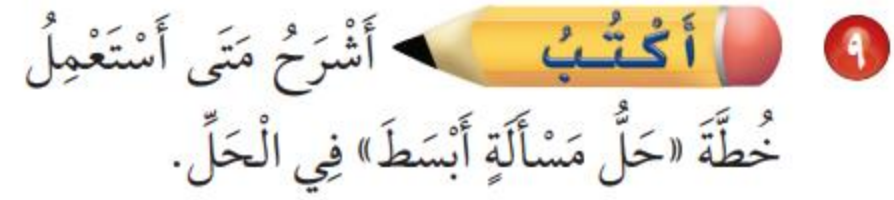 ٩ أَكْتُبُ أَشْرَحُ مَتَى أَسْتَعْمِلُ
خُطَّةَ «حَلُّ مَسْأَلَةٍ أَبْسَطَ» فِي الْحَلِّ.